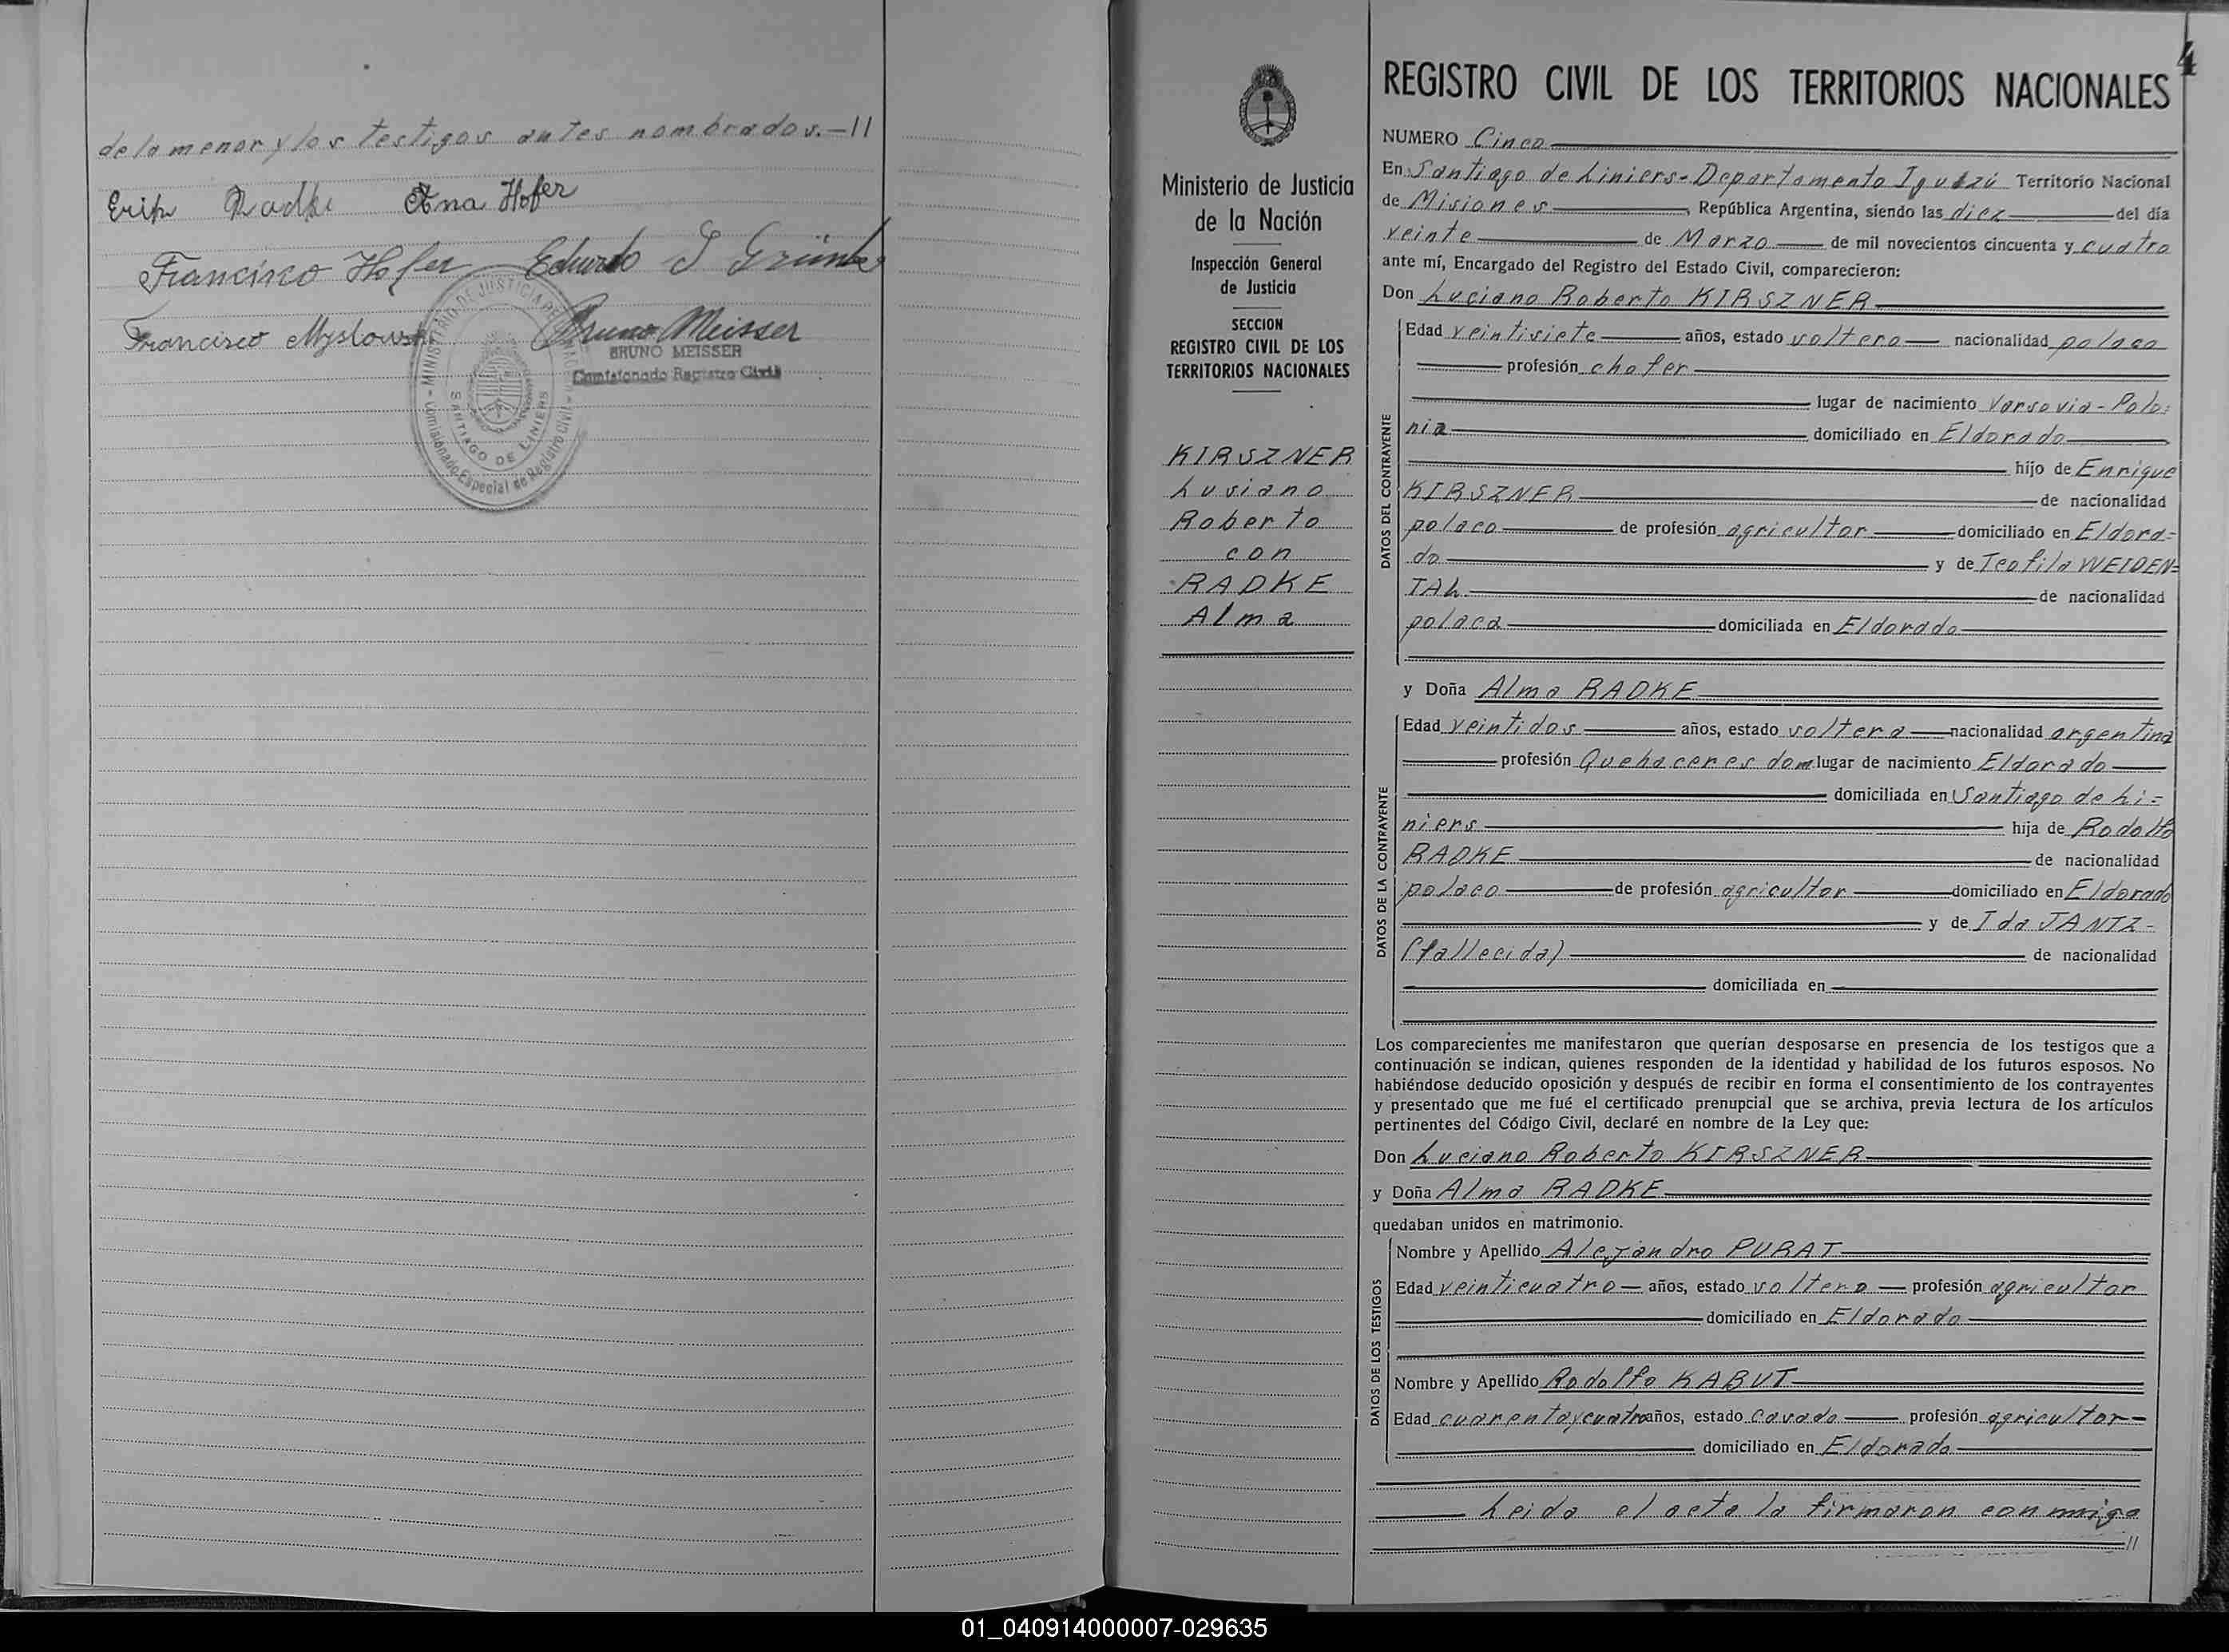 de la menor y los testigos antes nombrados.-//
Erich Radke Ana Hofer
Francisco Hofer Eduardo
Francisco Bruno Meisser
BRUNO MEISSER
Comisionado Registro Civil
MINISTERIO DE JUSTICIA
SANTIAGO DE LINIERS
Comisionado Especial de Registro Civil
4
Ministerio de Justicia
de la Nación
Inspección General
de Justicia
SECCION
REGISTRO CIVIL DE LOS
TERRITORIOS NACIONALES
KIRSZNER
Lusiano
Roberto
con
RADKE
Alma
REGISTRO CIVIL DE LOS TERRITORIOS NACIONALES
NUMERO Cinco
En Santiago de Liniers-Departamento Iguazú Territorio Nacional
de Misiones, República Argentina, siendo las diez del día
veinte de Marzo de mil novecientos cincuenta y cuatro
ante mí, Encargado del Registro del Estado Civil, comparecieron:
Don Luciano Roberto KIRSZNER
DATOS DEL CONTRAYENTE
Edad veintisiete años, estado soltero nacionalidad polaco
profesión chofer
lugar de nacimiento Varsovia-Polo=
nia domiciliado en Eldorado
hijo de Enrique
KIRSZNER de nacionalidad
polaco de profesión agricultor domiciliado en Eldora=
do y de Teofila WEIDEN=
TAL de nacionalidad
polaca domiciliada en Eldorado
y Doña Alma RADKE
DATOS DE LA CONTRAYENTE
Edad veintidos años, estado soltera nacionalidad argentina
profesión Quehaceres dom lugar de nacimiento Eldorado
domiciliada en Santiago de Li=
niers hija de Rodolfo
RADKE de nacionalidad
polaco de profesión agricultor domiciliado en Eldorado
y de Ida JANTZ-
(fallecida) de nacionalidad
domiciliada en
Los comparecientes me manifestaron que querían desposarse en presencia de los testigos que a
continuación se indican, quienes responden de la identidad y habilidad de los futuros esposos. No
habiéndose deducido oposición y después de recibir en forma el consentimiento de los contrayentes
y presentado que me fué el certificado prenupcial que se archiva, previa lectura de los artículos
pertinentes del Código Civil, declaré en nombre de la Ley que:
Don Luciano Roberto KIRSZNER
y Doña Alma RADKE
quedaban unidos en matrimonio.
DATOS DE LOS TESTIGOS
Nombre y Apellido Alejandro PURAT
Edad veinticuatro años, estado soltero profesión agricultor
domiciliado en Eldorado
Nombre y Apellido Rodolfo KABUT
Edad cuarentaycuatro años, estado casado profesión agricultor-
domiciliado en Eldorado
Leida el acta la firmaron conmigo
//
01_040914000007-029635